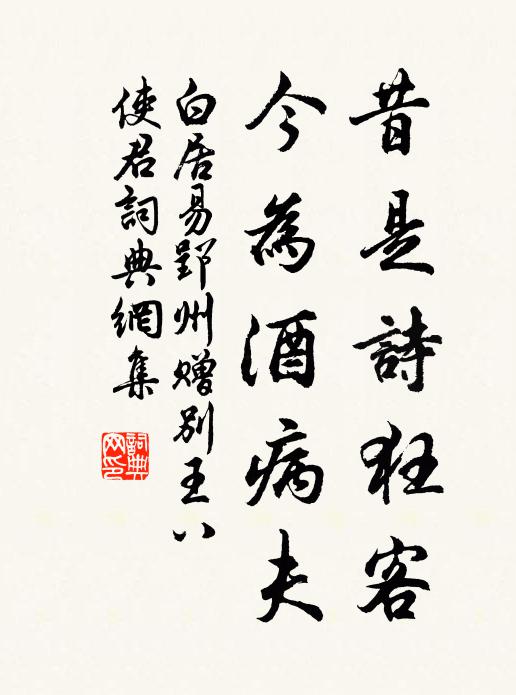 昔是詩狂客
今為酒病夫
白居易郢州贈別王八
使君詞典網集
詞典网印